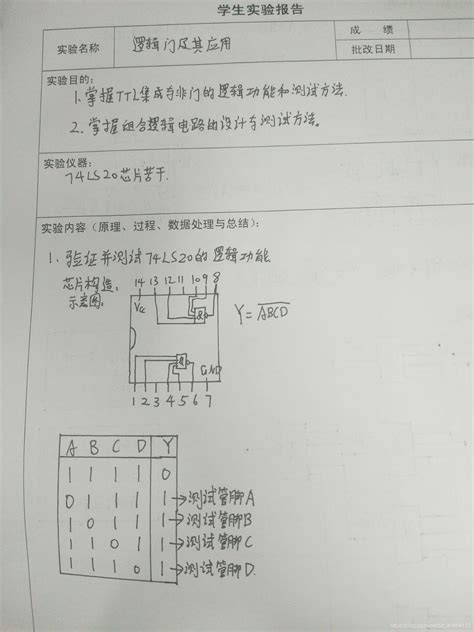 学生实验报告
实验名称 逻辑门及其应用 成 绩
批改日期
实验目的:
1.掌握TTL集成与非门的逻辑功能和测试方法.
2.掌握组合逻辑电路的设计与测试方法。
实验仪器:
74LS20芯片苦干.
实验内容（原理、过程、数据处理与总结）:
1.验证并测试74LS20的逻辑功能
芯片构造:
示意图:
14 13 12 11 10 9 8
Vcc
&
Y=ABCD
&
GND
1 2 3 4 5 6 7
A B C D Y
1 1 1 1 0
0 1 1 1 1→测试管脚A
1 0 1 1 1→测试管脚B
1 1 0 1 1→测试管脚C
1 1 1 0 1→测试管脚D.